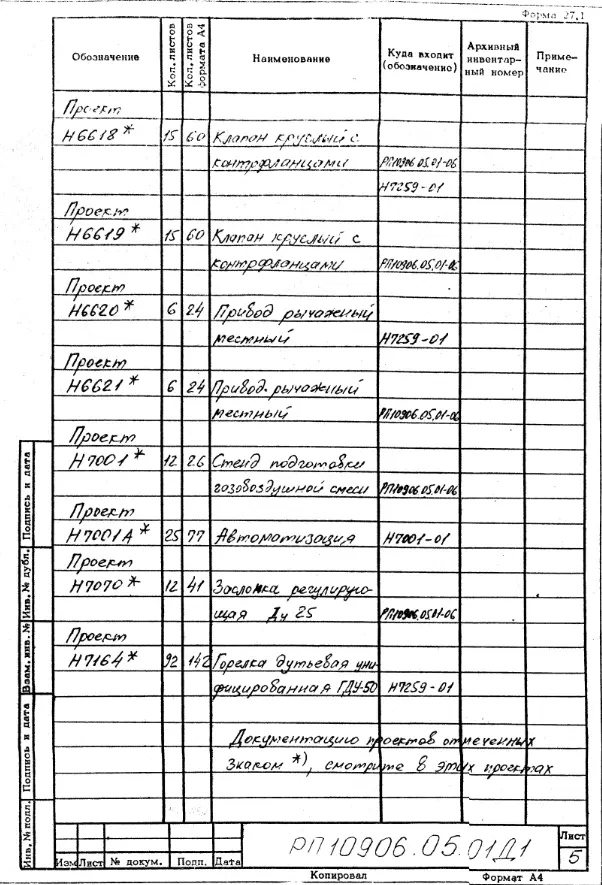 Форма 27.1
Обозначение Кол. листов Кол. листов формата А4 Наименование Куда входит (обозначение) Архивный инвентар-ный номер Приме-чание
Проект
Н6618* 15 60 Клапан круглый с
контрфланцами РП10906.05.01-06
Н7259-01
Проект
Н6619* 15 60 Клапан круглый с
контрфланцами РП10906.05.01-06
Проект
Н6620* 6 24 Привод рычажный
местный Н7259-01
Проект
Н6621* 6 24 Привод рычажный
местный РП10906.05.01-06
Проект
Н7001* 12 26 Стенд подготовки
газовоздушной смеси РП10906.05.01-06
Проект
Н7001А* 25 77 Автоматизация Н7001-01
Проект
Н7070* 12 41 Заслонка регулирую-
щая Ду 25 РП10906.05.01-06
Проект
Н7164* 92 142 Горелка дутьевая уни-
фицированная ГДУ-50 Н7259-01
Документацию проектов отмеченных
знаком *), смотрите в этих проектах
Инв. № подл. Подпись и дата Взам. инв. № Инв. № дубл. Подпись и дата
РП10906.05.01Д1
Лист
5
Изм Лист № докум. Подп. Дата
Копировал Формат А4